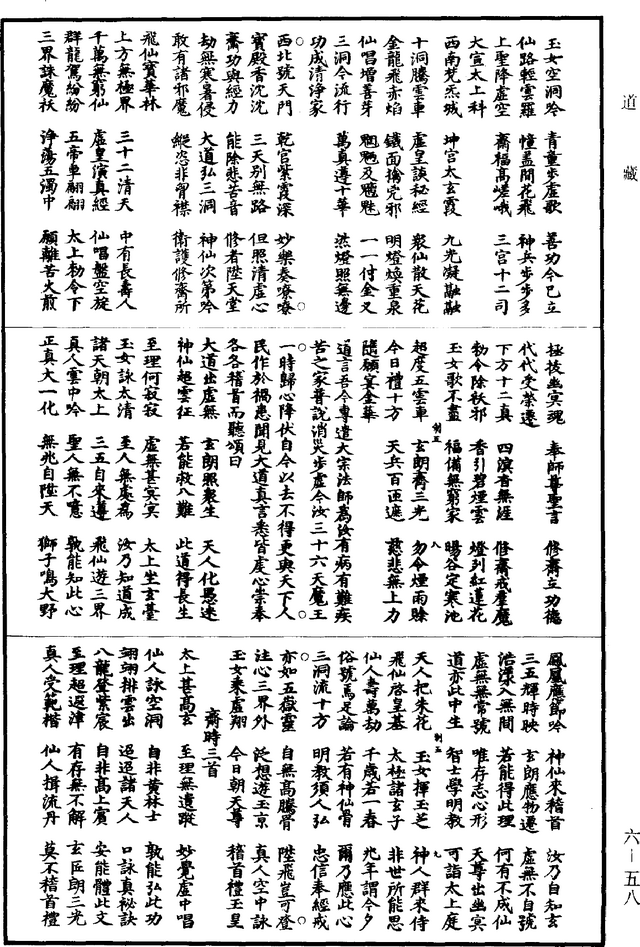 道藏
玉女空洞吟　青童步虛歌　善功今已立
仙路輕雲羅　幢蓋間花飛　神兵步步多
上聖降虛空　齋福高嵯峨　三官十二司
大宣太上科
西南梵炁城　坤宮太玄霞　九光凝融融
十洞騰雲車　虛皇談秘經　衆仙散天花
金龍飛赤焰　鐵面擒兇邪　明燈煥重泉
仙唱增善芽　魍魎及魑魅　一一付金叉
三洞令流行　萬真遵十華　然燈照無邊
功成清淨家
西北號天門　乾官紫霞深　妙樂奏嘹嘹
寶殿香沈沈　三天別無路　但照清虛心
齋功與經力　能除悲苦音　修者陞天堂
劫無寒暑侵　大道弘三洞　神仙次第吟
敢有諸邪魔　縱恣非胃襟　衛護修齋所
飛仙寶華林
上方無極界　三十二清天　中有長壽人
千萬無窮仙　虛皇演真經　仙唱盤空旋
群龍駕紛紛　五帝車翩翩　太上勑令下
三界誅魔祅　淨蕩五濁中　願離苦火煎
拯拔幽冥魂　奉師尊聖言　修齋立功德
代代受榮遷
下方十二真　四溟杳無涯　修齋戒羣魔
勑令除祅邪　香引碧煙雲　燈列紅蓮花
玉女歌不盡　福備無窮家　暘谷定寒池
制五　八
超度五雲車　玄朗齋三光　勿令煙雨賒
今日禮十方　天兵百匝遮　慈悲無上力
隨願宴金華
道言吾今專遣大宗法師為汝有病有難疾
苦之家普說消災步虛令汝三十六天魔王
一時歸心降伏自今以去不得更與天下人
民作於禍患聞見大道真言悉皆虔心崇奉
各各稽首而聽頌曰
大道出虛無　玄朗照衆生　天人化愚迷
神仙超雲征　若能救八難　此道得長生
至理何寂寂　虛無甚冥冥　太上坐玄臺
玉女詠太清　至人無處為　汝乃知道成
諸天朝太上　三五自來遵　飛仙遊三界
真人雲中吟　聖人無不憶　孰能知此心
正真大一化　無兆自陞天　獅子鳴大野
鳳凰應節吟　神仙來稽首　汝乃自知玄
三五輝時映　玄朗應物遷　虛無不自號
浩漾入無間　若能得此理　何有不成仙
虛無無常號　唯存志心形　天尊出幽冥
道亦此中生　智士學明教　可詣太上庭
制五　九
天人把朱花　玉女揮玉芝　神人群來侍
飛仙啓皇基　太極諸玄子　非世所能思
仙人壽萬劫　千歲若一春　兆年謂今夕
俗號焉足論　若有神仙骨　爾乃應此心
三洞流十方　明教須人弘　忠信奉經戒
亦如五嶽靈　自無高騰骨　陞飛豈可登
注心三界外　泛想遊玉京　真人空中詠
玉女乘虛翔　今日朝天尊　稽首禮玉皇
齋時三首
太上甚高玄　至理無遺蹤　妙覺虛中唱
仙人詠空洞　自非黃林士　孰能弘此功
翊翊排雲出　迢迢諸天人　口詠真祕訣
八龍登紫宸　自非高上賓　安能體此文
至理超遐津　有存無不解　玄匠朗三光
真人受範楷　仙人揖流丹　莫不稽首禮
六—五八